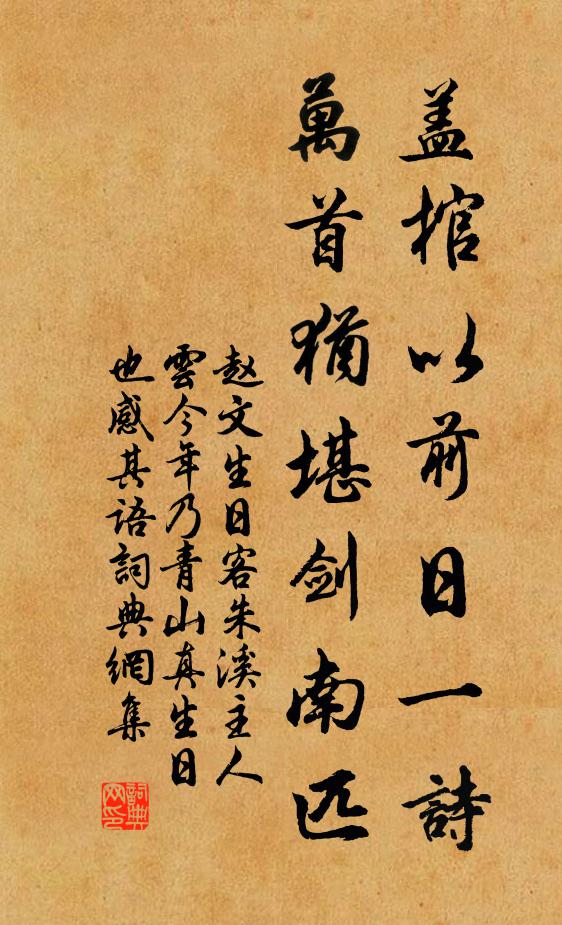 盖棺以前日一詩
萬首猶堪劍南匹
赵文生日客朱溪主人
雲今年乃青山真生日
也感其语詞典網集
詞典网印